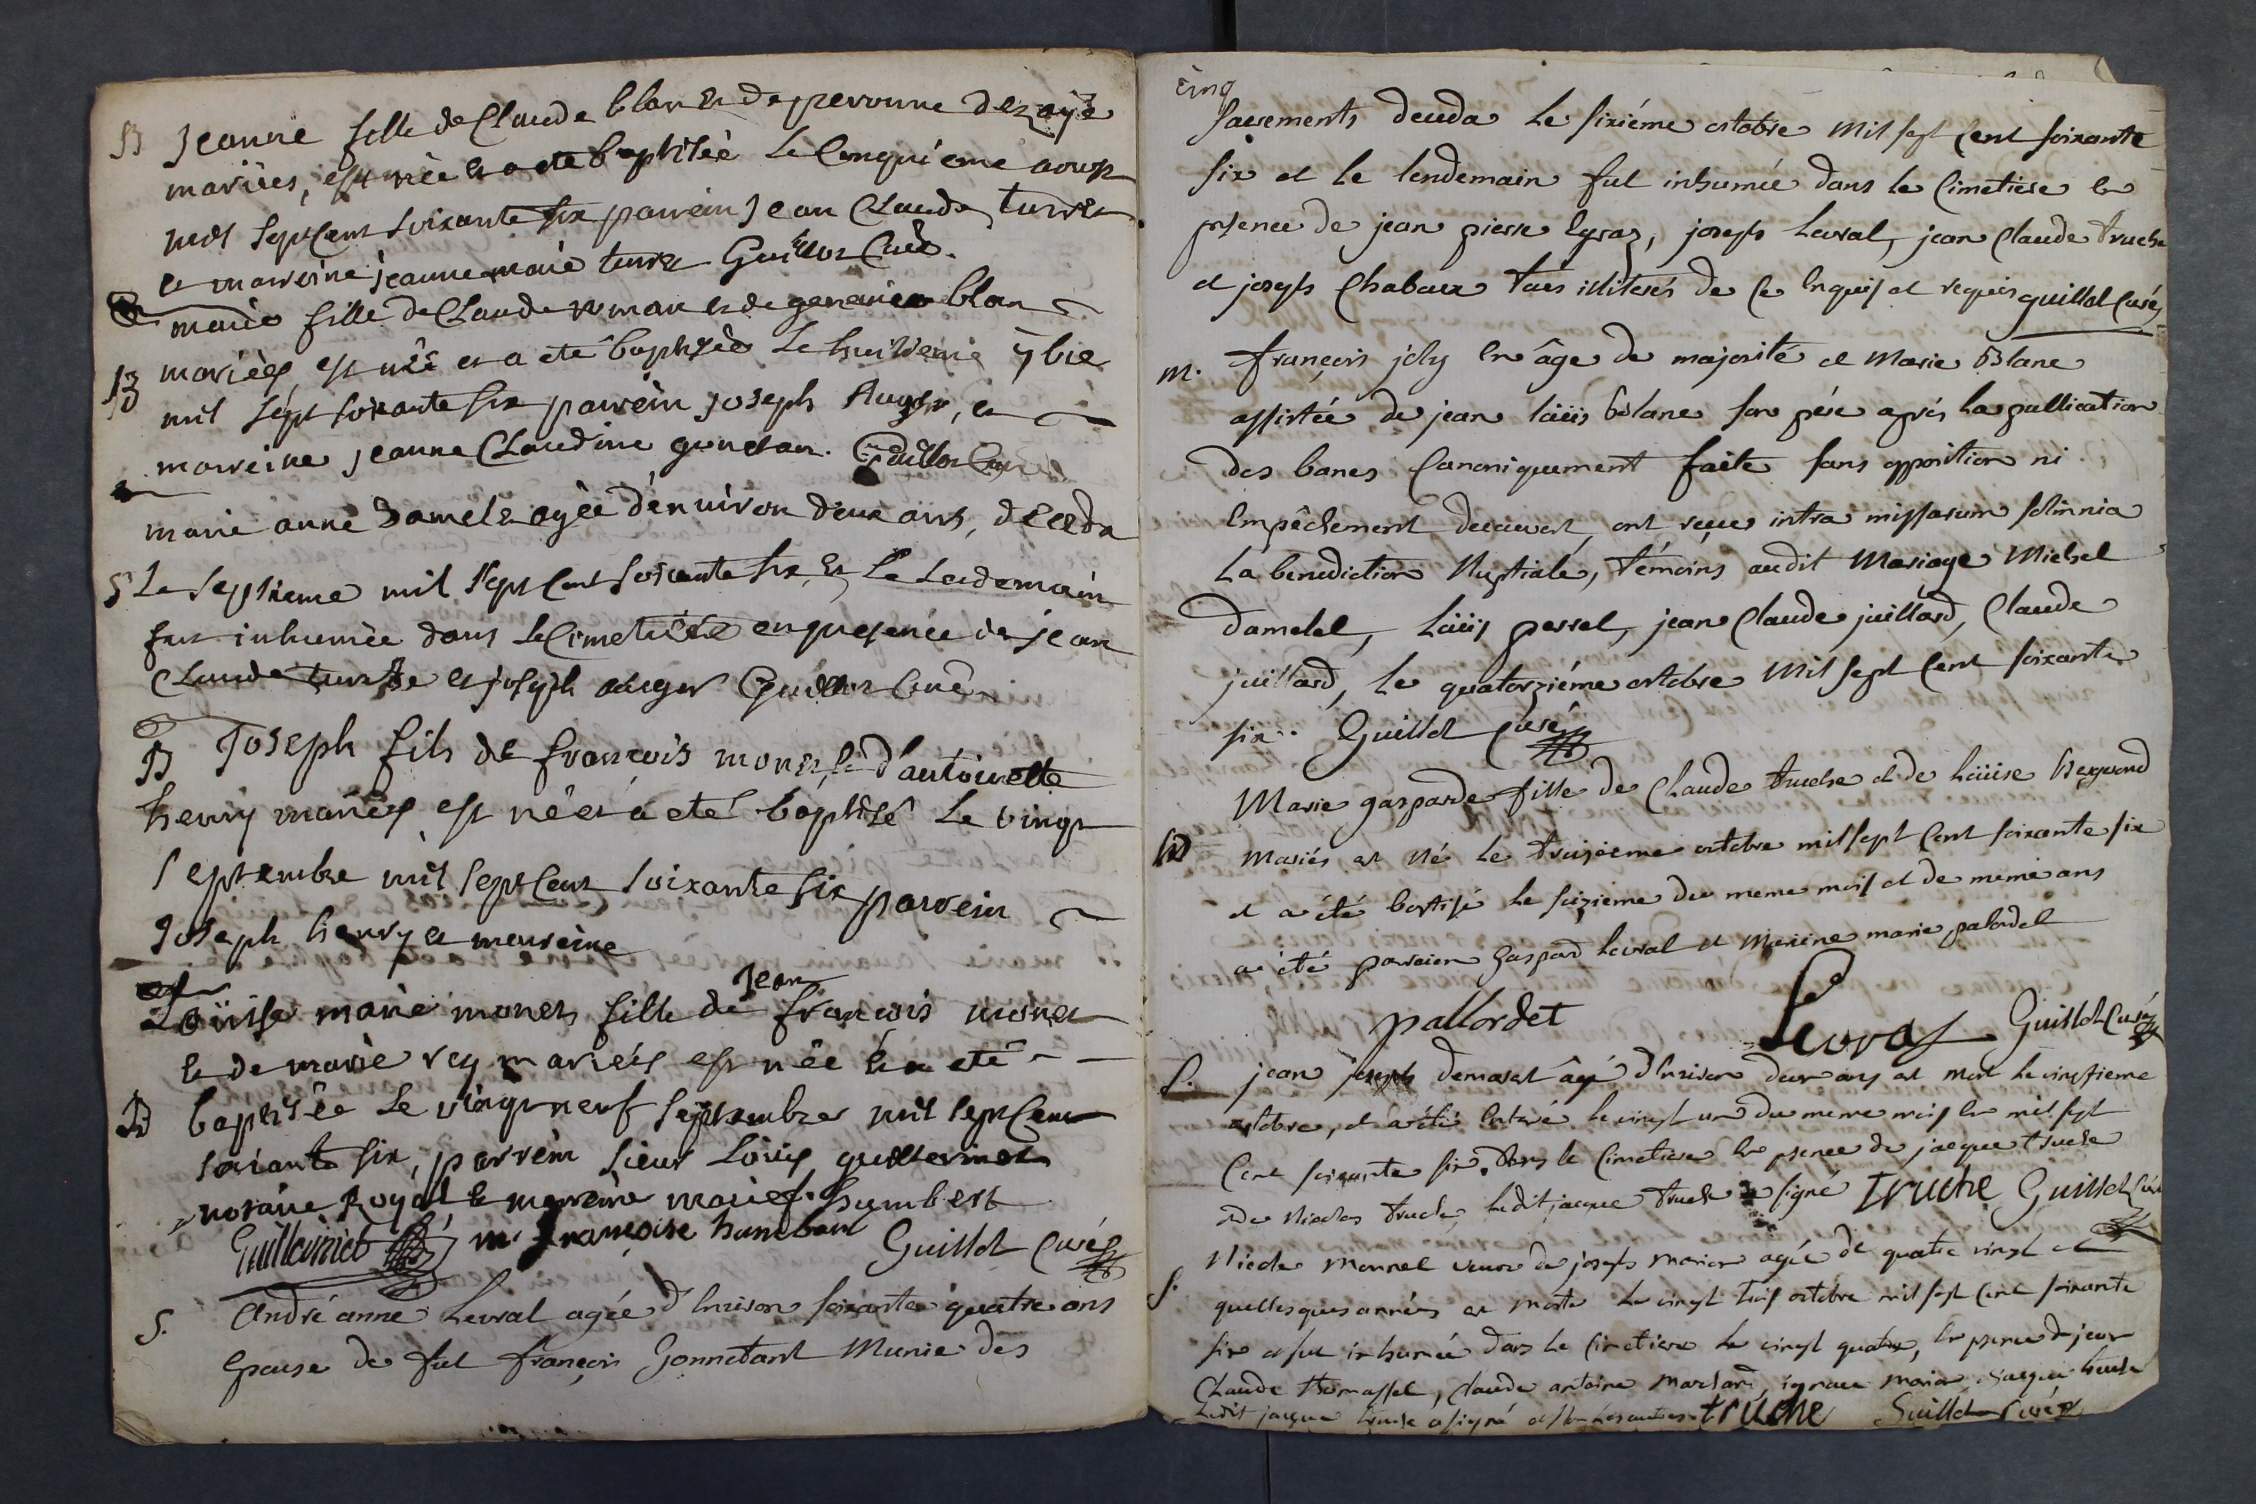 B Jeanne fille de Claude blan et de peronne dezayé
mariées, est née et a ete baptiséè Le Cinquieme aoust
mil Sept Cent Soixante six parrein Jean Claude turret
et marreine jeanne marie turret Guillot Curé.
marie fille de Claude roman et de genevieve blan
B mariéés est néé et a eté baptiséé Le huitieme 7bre
mil sépt soixante six parrein joseph Auger, et
marreine jeanne Claudine gunetan. Guillot Curé
marie anne Damelet agéé d'enuiron deux ans, deceda
S Le septieme mil sept Cent soixante six, et Le Lendemain
fut inhumée dans Le Cimetiére en presence de jean
Claude et joseph auger Guillot Curé
B Joseph fils de francois monet, et d'antoinette
henry mariés est né et a eté baptisé Le vingt
septembre mil sept Cent soixante six parrein
Joseph henry et marreine
Jean
Loüise marie monet fille de francois monet
et de marie rey mariéés est néé et a eté
B baptisée Le vingt neuf septembre mil sept Cent
soixante six, parrein sieur Loüis guillermet
notaire Royal et marreine marie f. humbert
Guillermet m. françoise humbert Guillot Curé
S. André anne Levrat agée d'Environ soixante quatre ans
Epouse de fut françois Gonnetant Munie des
Cinq
sacrements deceda Le sixiéme octobre mil sept Cent soixante
six et le lendemain fut inhumée dans le Cimetiere En
présence de jean pierre Eyraz, joseph Levrat, jean Claude truche
et joseph Chabaux tous illiterés de Ce Enquis et requis guillot Curé
m. françois joly En âge de majorité et Marie Blanc
assistée de jean loüis Blanc son pére aprés la publication
des bancs Canoniquement faite sans opposition ni
Empêchement decouvert, ont reçue intra missarum solemnia
La benediction Nuptiale, témoins audit Mariage Michel
damelet, Loüis perret, jean Claude juillard, Claude
juillard, le quatorziéme octobre mil sept Cent soixante
six. Guillot Curé
Marie gasparde fille de Claude truche et de Loüise
B mariés est né le troisieme octobre mil sept Cent soixante six
et a été batisé le seizieme du meme mois et de meme ans
a été parrein gaspard levrat et Mareine marie palordet
pallordet Levrat Guillot Curé
S. jean joseph demaret âgé d'Environ deux ans est mort le vingtieme
octobre, et a été Enterré le vingt un du meme mois En mil sept
Cent soixante six. dans le Cimetiere En presence de jacque truche
et de Nicolas truche, ledit jacque truche a signé truche Guillot Curé
S. Nicole Monnet veuve de joseph morier agée de quatre vingt et
quellesques années est morte le vingt trois octobre mil sept Cent soixante
six et fut inhumée dans le Cimetiere le vingt quatre, En presence de jean
Claude thomasset, Claude antoine marchand, ignace morier, jacque truche
Ledit jacque truche a signé et non Les autres truche Guillot Curé